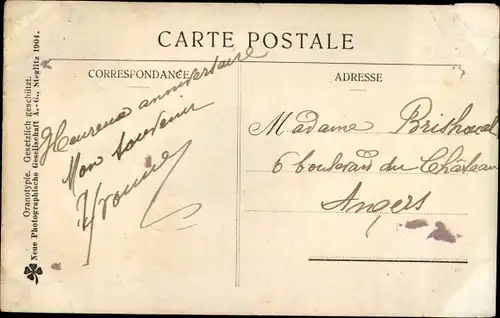 CARTE POSTALE
CORRESPONDANCE
ADRESSE
Heureux anniversaire
Mon souvenir
Yvonne
Madame
6 boulevard du Château
Angers
Oranotypie. Gesetzlich geschützt.
Neue Photographische Gesellschaft A.-G., Steglitz 1904.